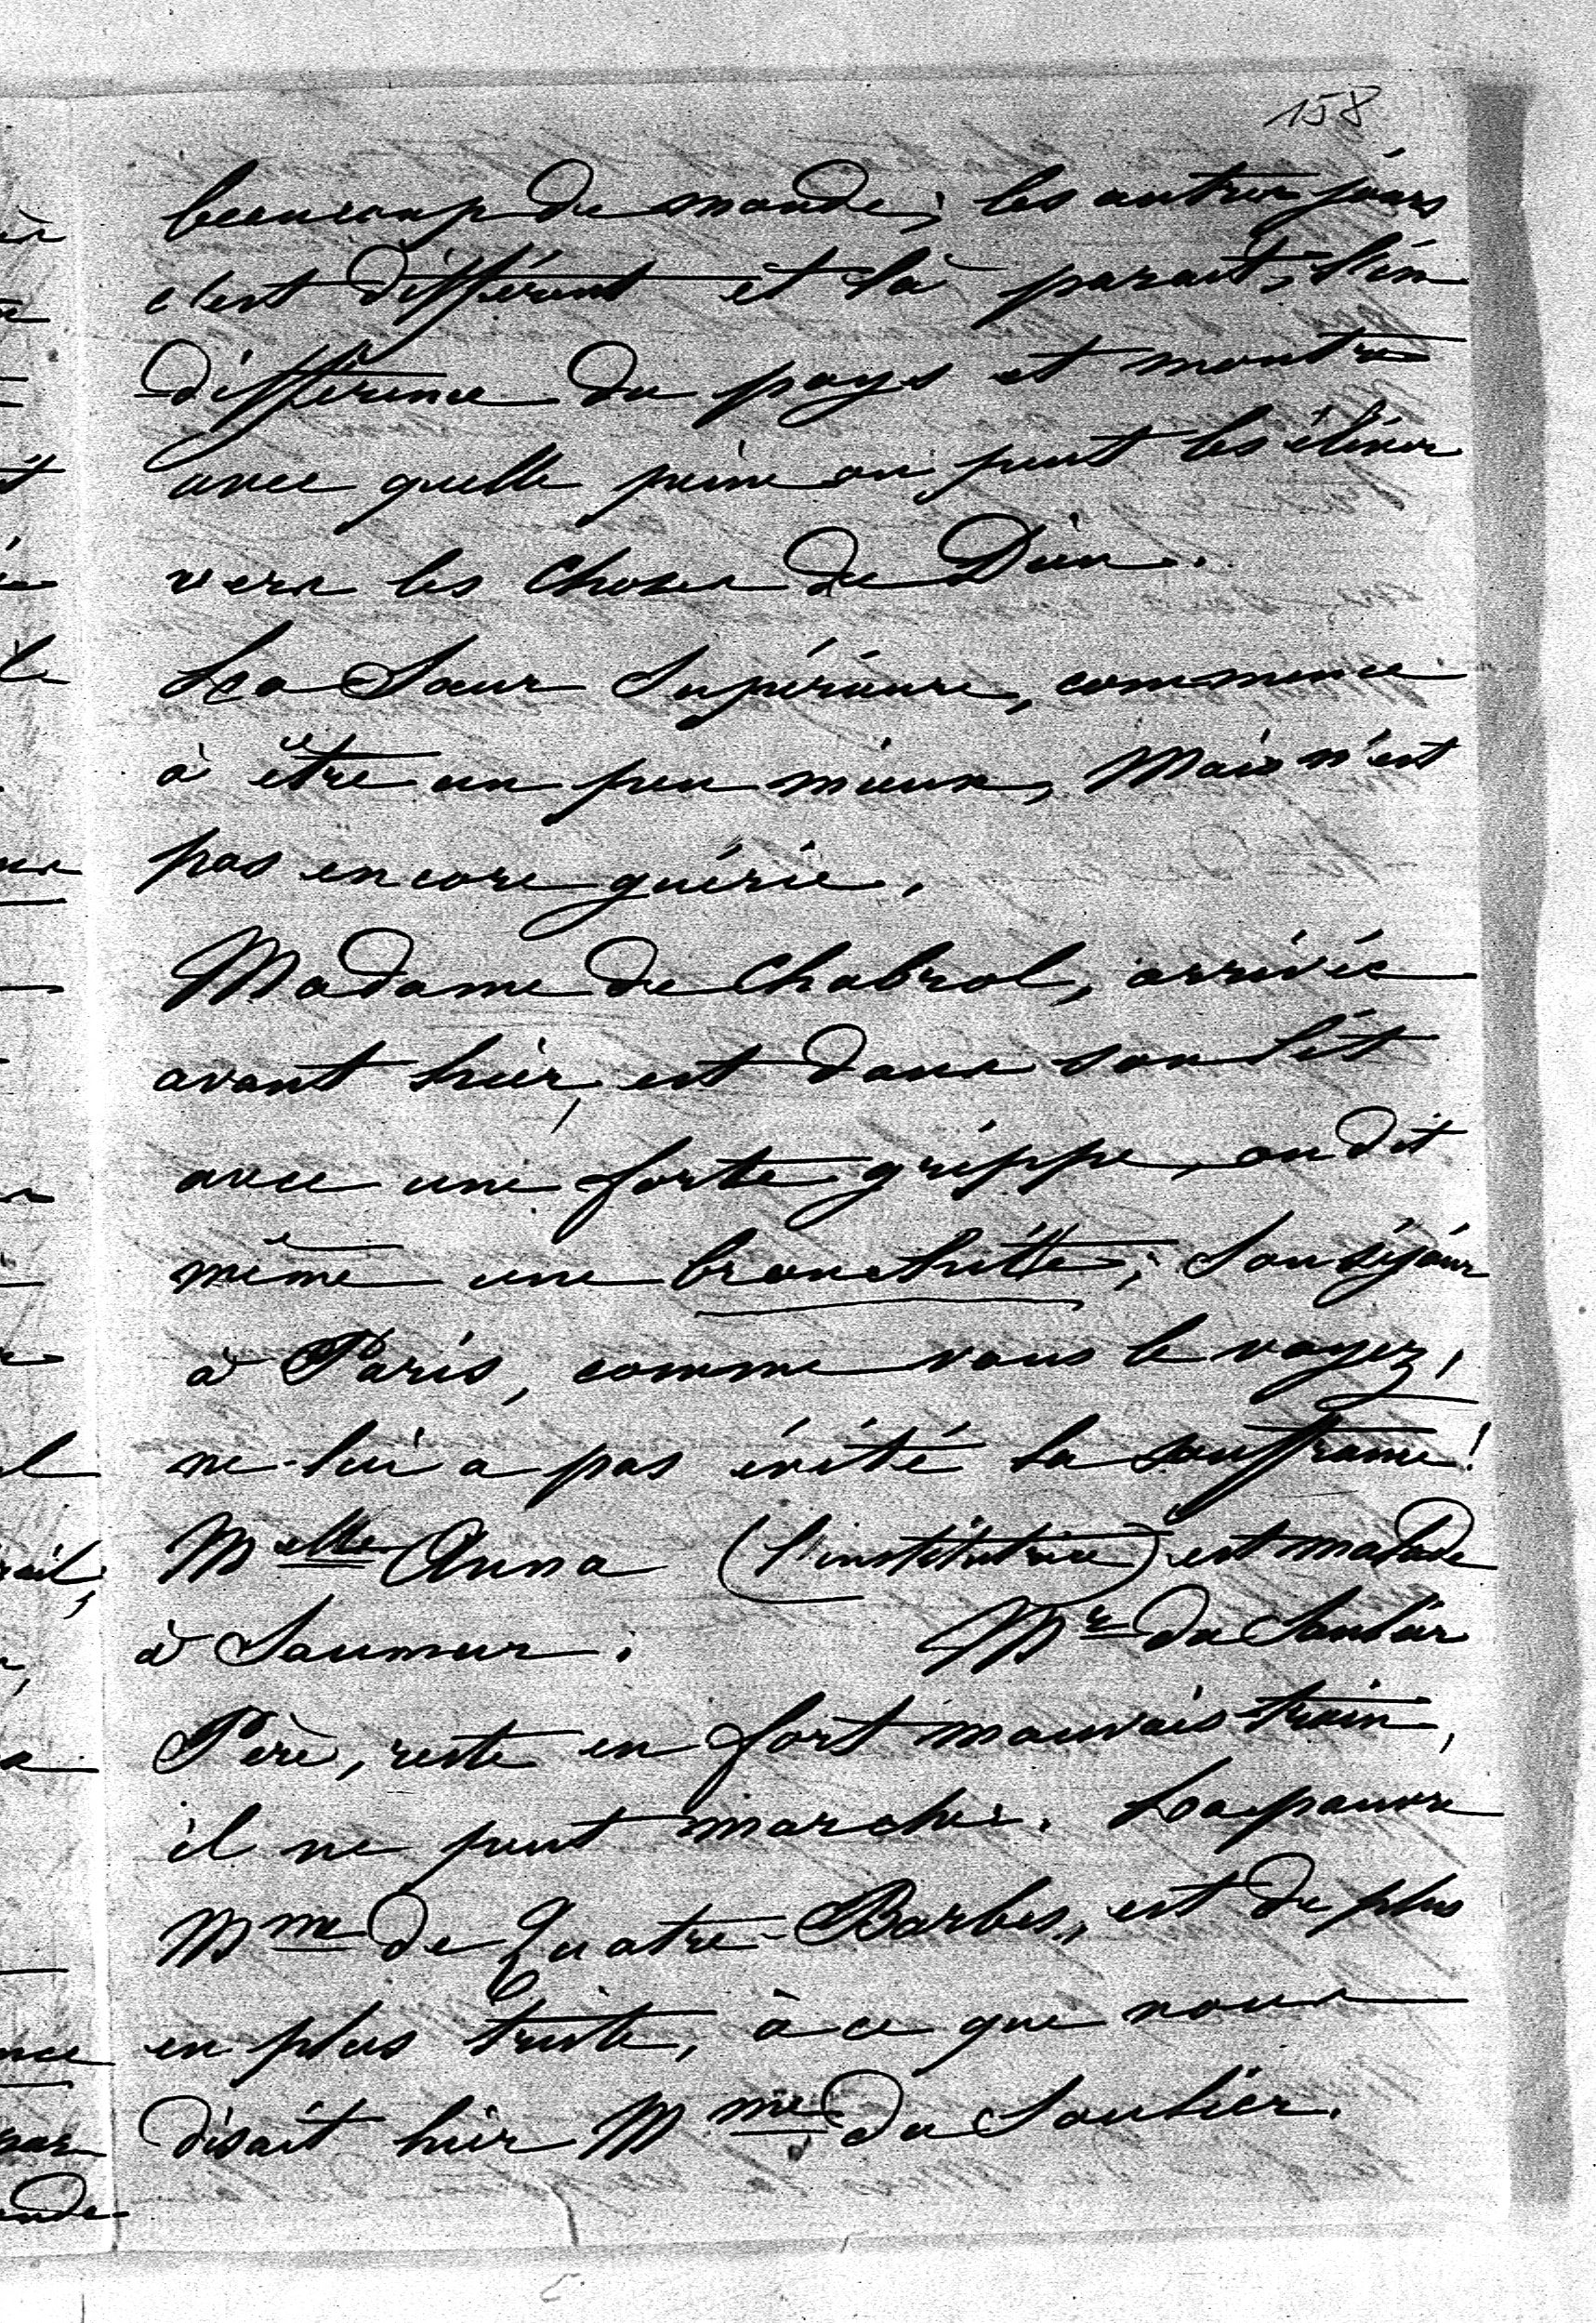 158
beaucoup de monde; les autres jours
c'est différent et là paraît, l'in
différence du pays et montre
avec quelle peine on peut les élever
vers les choses de Dieu.
La Sœur Supérieure, commence
à être un peu mieux, Mais n'est
pas encore guérie.
Madame de Chabrol, arrivée
avant hier, est dans son lit
avec une forte grippe, on dit
même une bronchitte; Son séjour
à Paris, comme vous le voyez,
ne lui a pas évité la souffrance!
Melle Anna (l'institutrice) est malade
à Saumur. Mr du Soulier
Père, reste en fort mauvais train,
il ne peut marcher. La pauvre
Mme de Quatre-Barbes, est de plus
en plus triste, à ce que nous
disait hier Mme du Soulier.